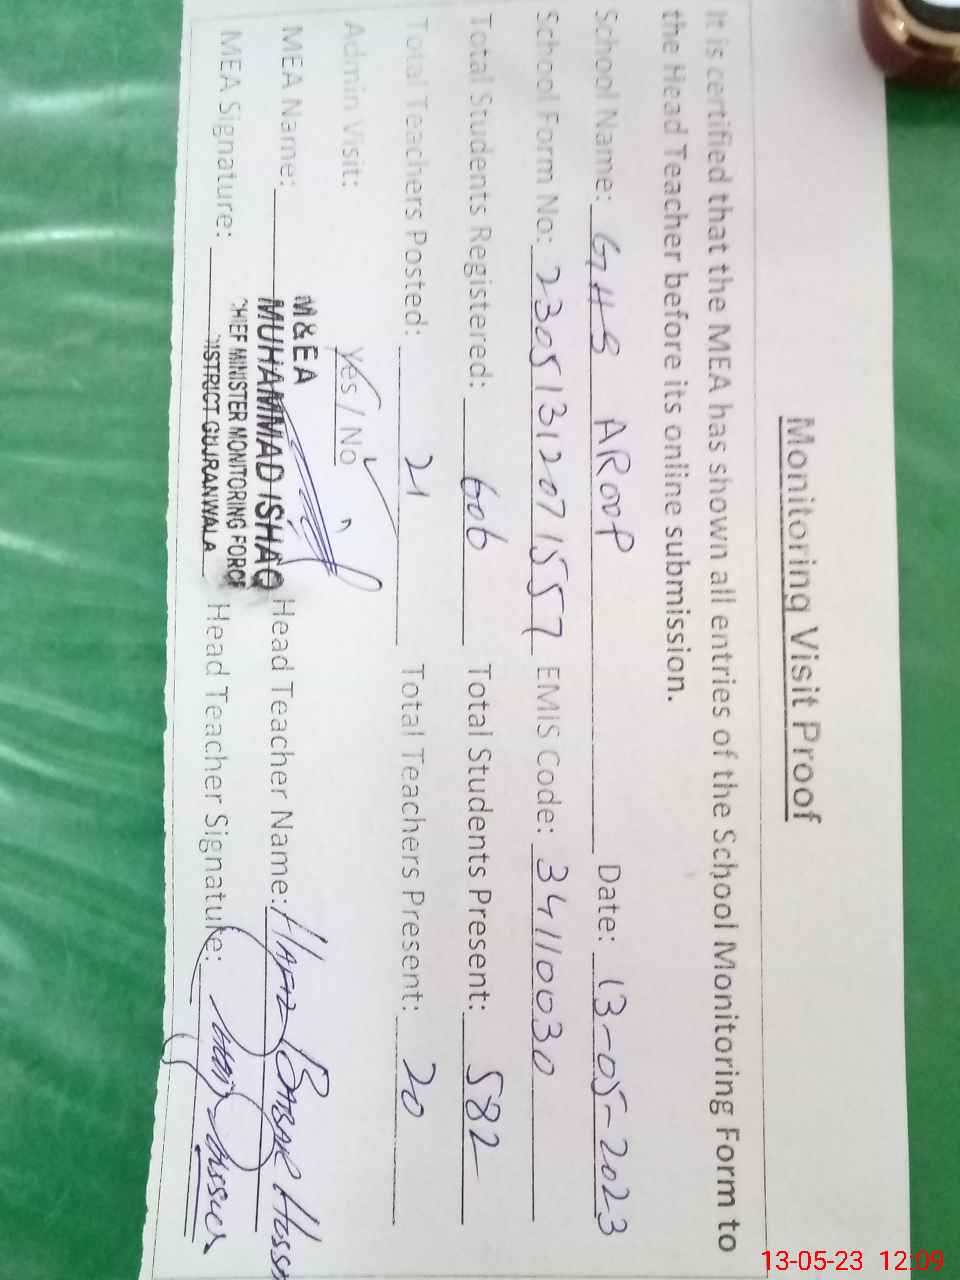 Monitoring Visit Proof
It is certified that the MEA has shown all entries of the School Monitoring Form to
the Head Teacher before its online submission.
School Name: GHS AROOP Date: 13-05-2023
School Form No: 23051312071557 EMIS Code: 34110030
Total Students Registered: 606 Total Students Present: 582
Total Teachers Posted: 21 Total Teachers Present: 20
Admin Visit: Yes / No
M&EA
MEA Name: MUHAMMAD ISHAQ Head Teacher Name: HAFIZ BABAR
CHIEF MINISTER MONITORING FORCE
MEA Signature: DISTRICT GUJRANWALA Head Teacher Signature:
13-05-23 12:09